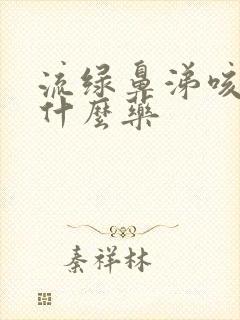 流绿鼻涕咳
什麼藥
秦祥林